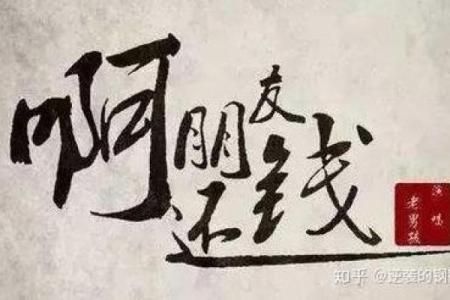 啊朋友
还钱
演唱
老男孩
知乎 @逆袭的钢